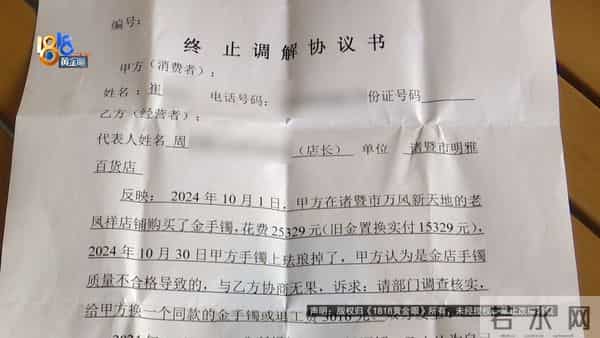 编号:
1818
黄金眼
终 止 调 解 协 议 书
甲方(消费者):
姓名: 崔 电话号码: 份证号码
乙方(经营者):
代表人姓名 周 (店长) 单位 诸暨市明雅
百货店
反映: 2024年10月1日,甲方在诸暨市万风新天地的老
凤祥店铺购买了金手镯,花费25329元(旧金置换实付15329元),
2024年10月30日甲方手镯上珐琅掉了,甲方认为是金店手镯
质量不合格导致的,与乙方协商无果,诉求:请部门调查核实,
给甲方换一个同款的金手镯或退工费3010元
声明:版权归《1818黄金眼》所有,未经授权
若水网